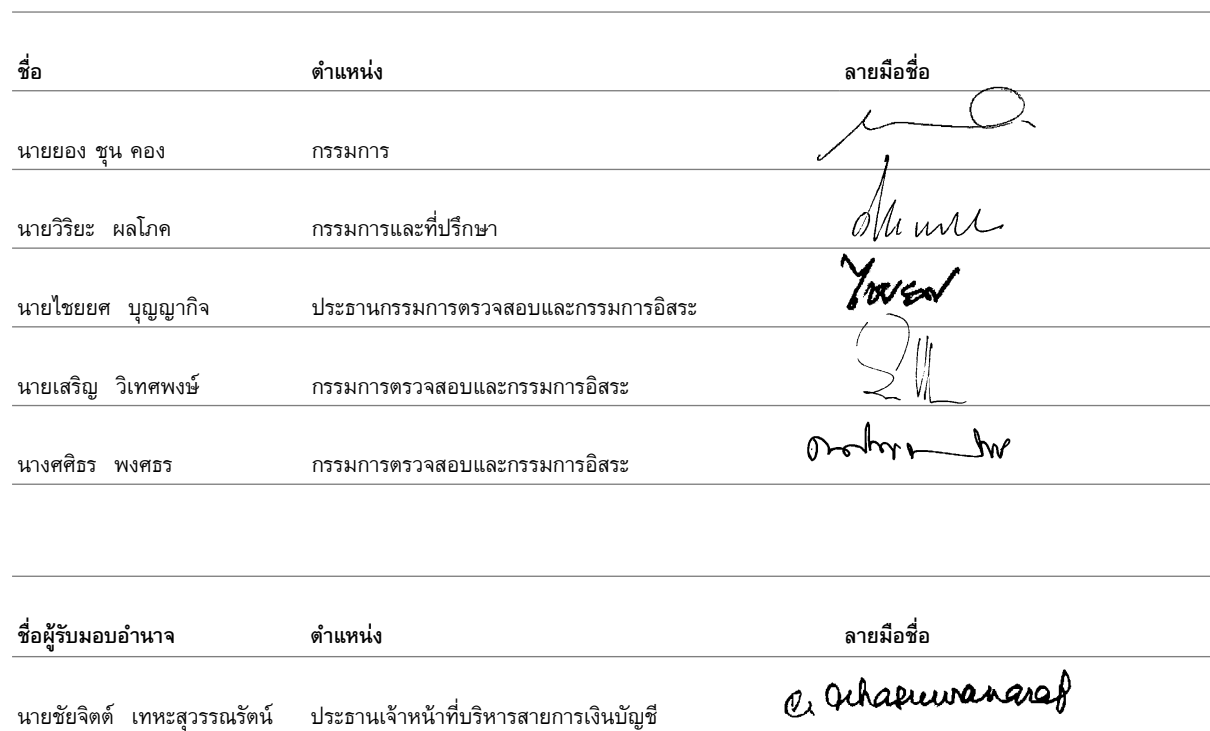 ชื่อ ตำแหน่ง ลายมือชื่อ
นายยอง ชุน คอง กรรมการ
นายวิริยะ ผลโภค กรรมการและที่ปรึกษา
นายไชยยศ บุญญากิจ ประธานกรรมการตรวจสอบและกรรมการอิสระ
นายเสริญ วิเทศพงษ์ กรรมการตรวจสอบและกรรมการอิสระ
นางศศิธร พงศธร กรรมการตรวจสอบและกรรมการอิสระ
ชื่อผู้รับมอบอำนาจ ตำแหน่ง ลายมือชื่อ
นายชัยจิตต์ เทหะสุวรรณรัตน์ ประธานเจ้าหน้าที่บริหารสายการเงินบัญชี